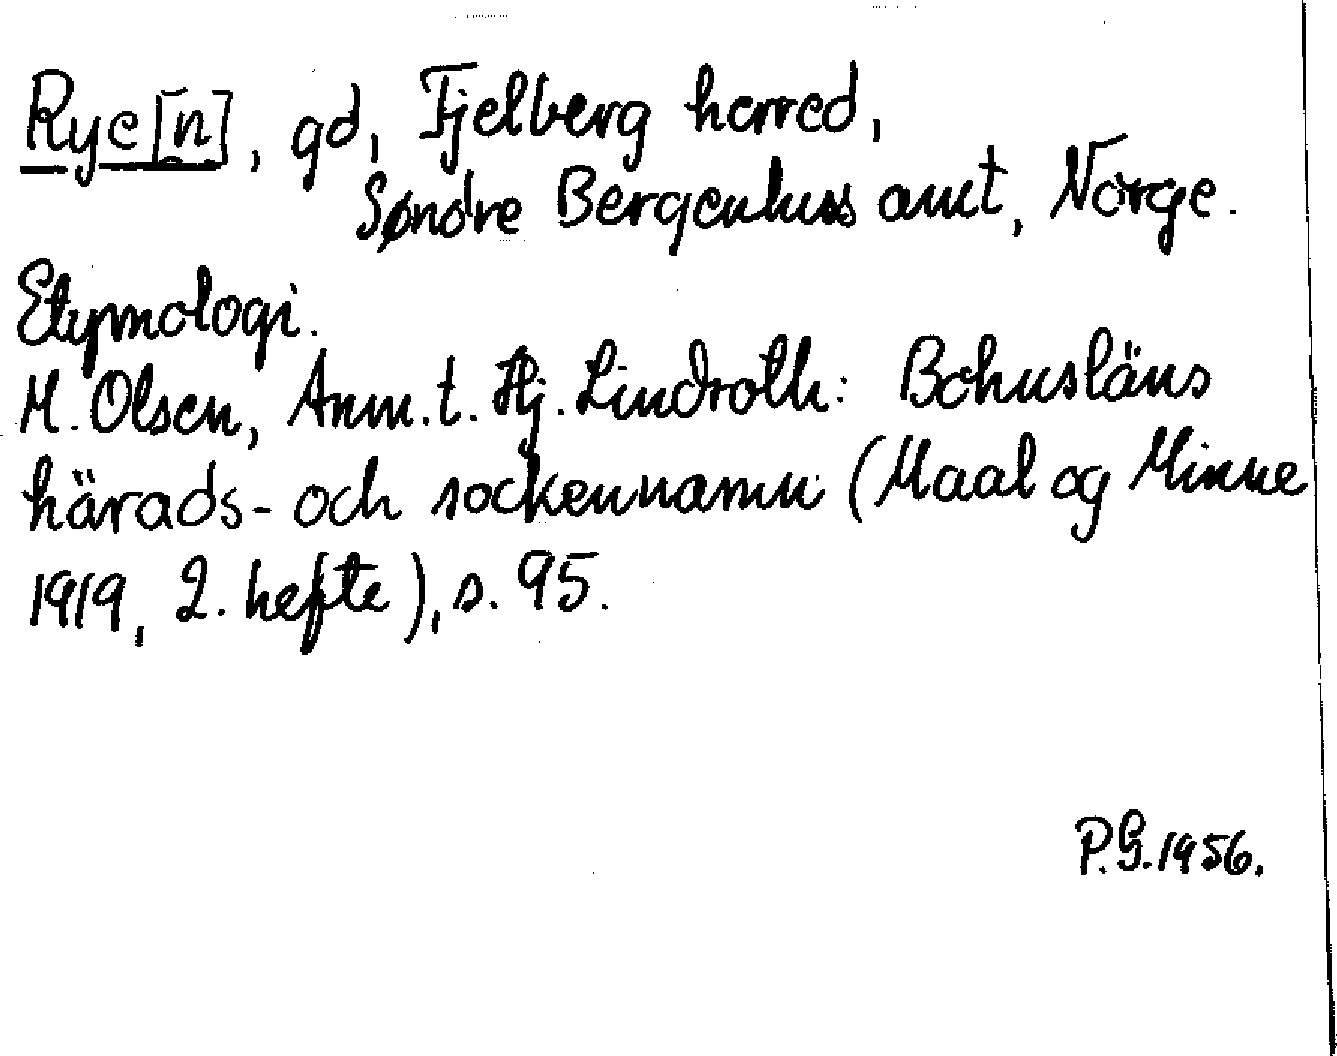 Rye[n], gd, Fjelberg herred,
Søndre Bergenhuss amt, Norge.
Etymologi.
M. Olsen, Anm. t. Hj. Lindroth: Bohusläns
härads- och sockennamn (Maal og Minne
1919, 2. hefte), s. 95.
P.G. 1956.